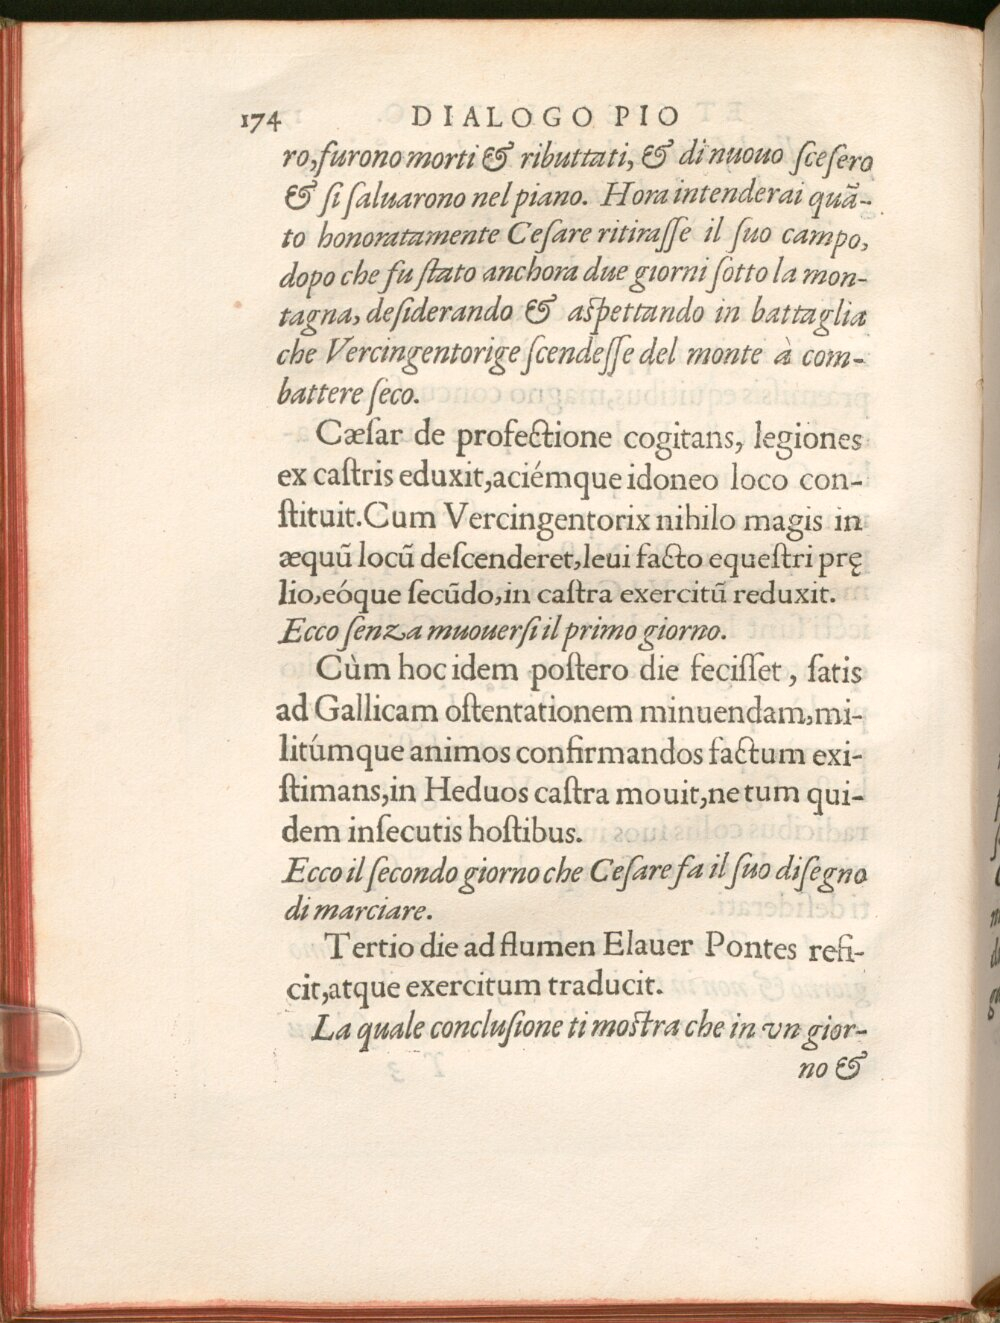 174 DIALOGO PIO
ro, furono morti & ributtati, & di nuouo ſceſero
& ſi ſaluarono nel piano. Hora intenderai quã-
to honoratamente Ceſare ritiraſſe il ſuo campo,
dopo che fu ſtato anchora due giorni ſotto la mon-
tagna, deſiderando & aſpettando in battaglia
che Vercingentorige ſcendeſſe del monte à com-
battere ſeco.
Cæſar de profectione cogitans, legiones
ex caſtris eduxit, aciémque idoneo loco con-
ſtituit. Cum Vercingentorix nihilo magis in
æquũ locũ deſcenderet, leui facto equeſtri prę
lio, eóque ſecũdo, in caſtra exercitũ reduxit.
Ecco ſenza muouerſi il primo giorno.
Cùm hoc idem poſtero die feciſſet, ſatis
ad Gallicam oſtentationem minuendam, mi-
litúmque animos confirmandos factum exi-
ſtimans, in Heduos caſtra mouit, ne tum qui-
dem inſecutis hoſtibus.
Ecco il ſecondo giorno che Ceſare fa il ſuo diſegno
di marciare.
Tertio die ad flumen Elauer Pontes refi-
cit, atque exercitum traducit.
La quale concluſione ti moſtra che in vn gior-
no &